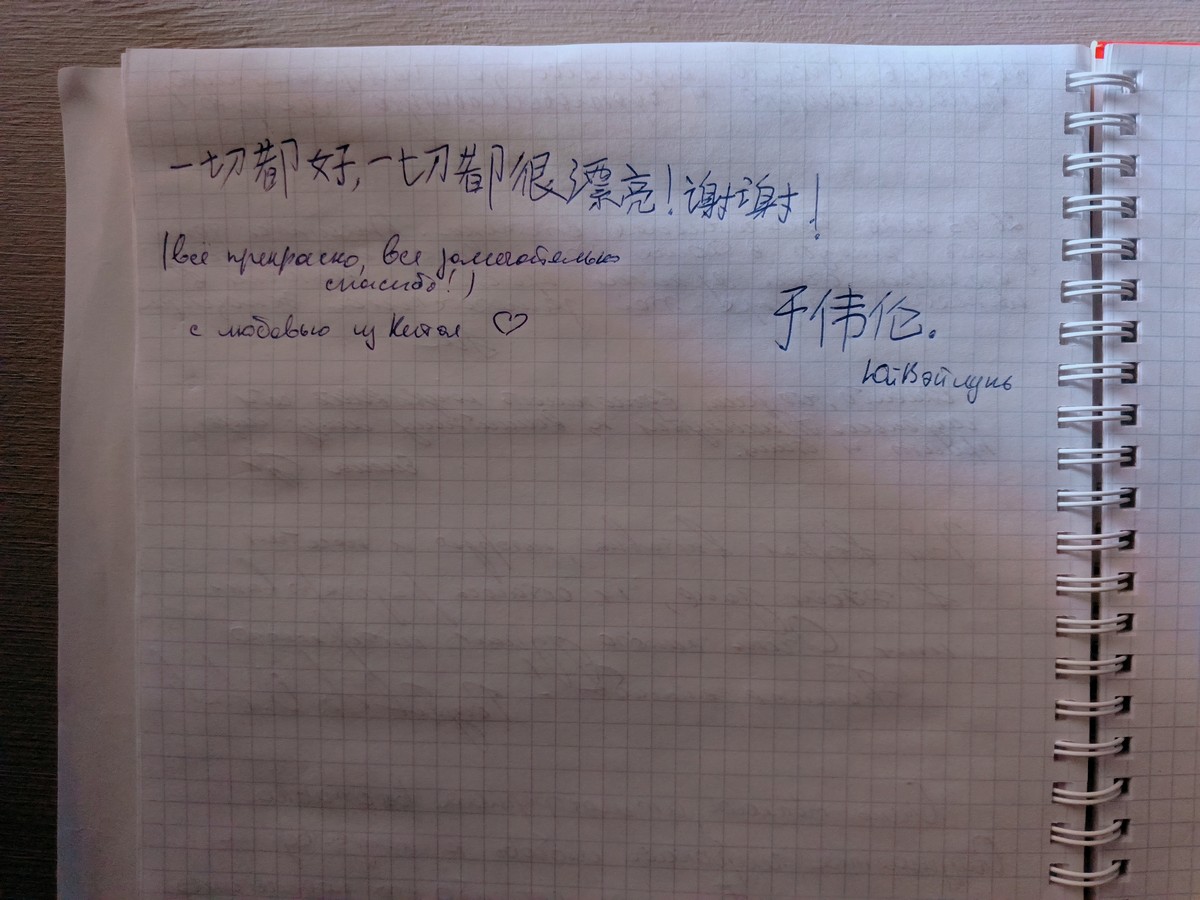 一切都好,一切都很漂亮!谢谢!
(всё прекрасно, все замечательно
спасибо!)
с любовью из Китая ♡
于伟伦.
Юй Вэй лунь